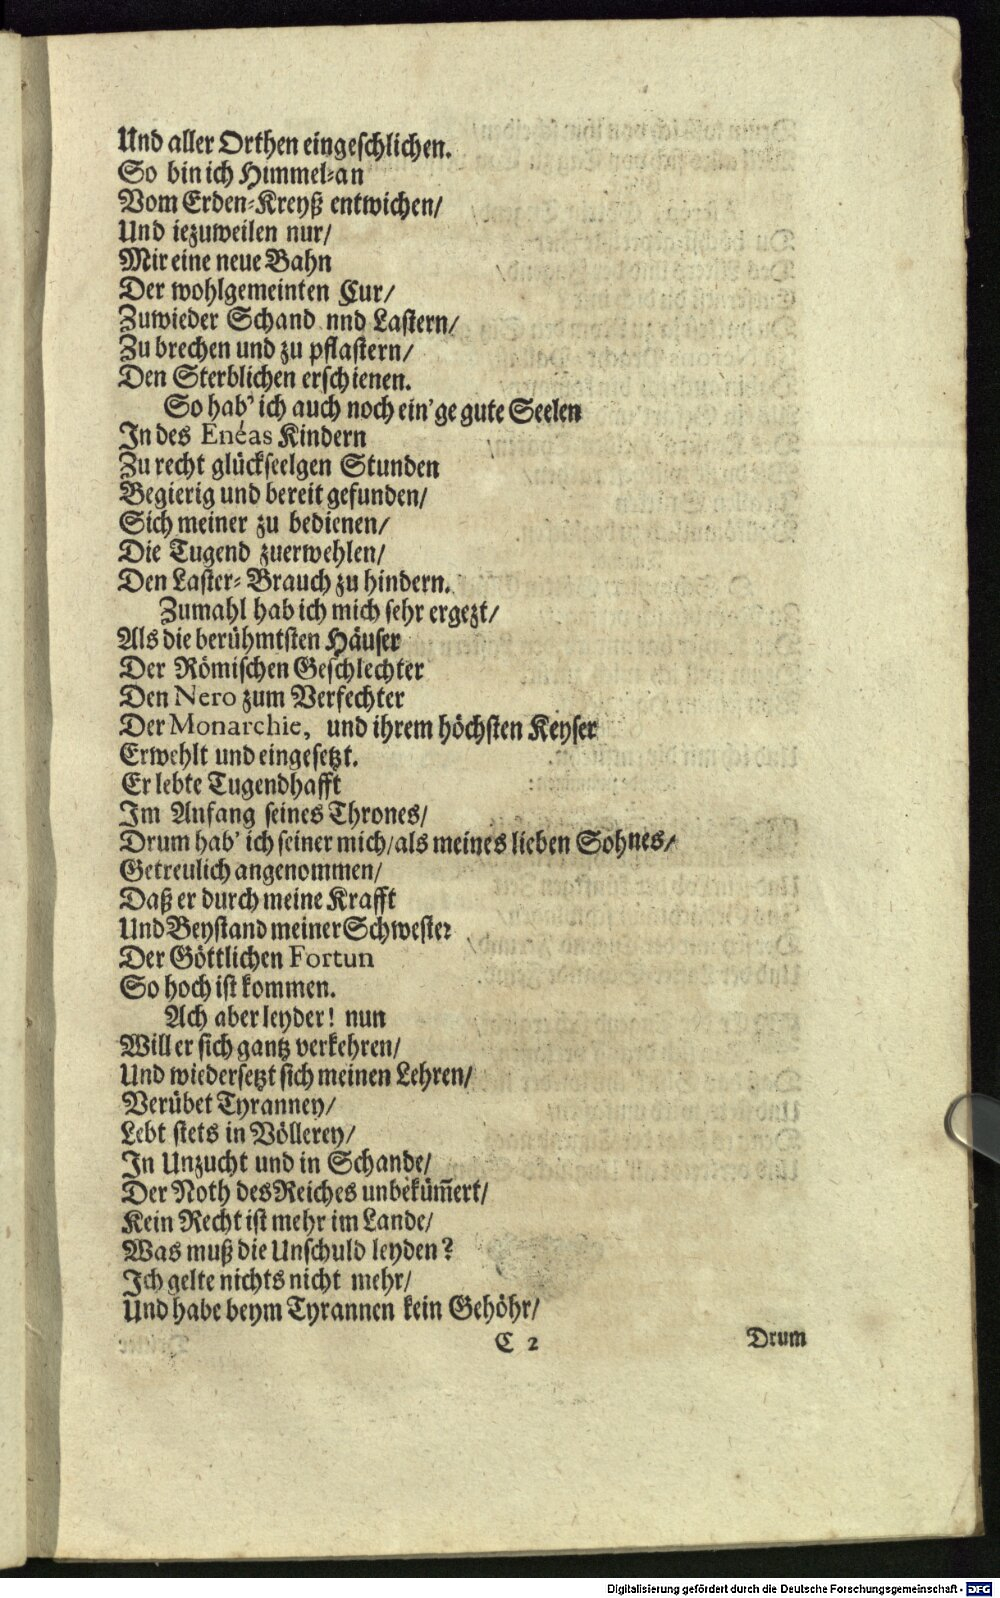 Und aller Orthen eingeschlichen.
So bin ich Himmel-an
Vom Erden-Kreyß entwichen/
Und iezuweilen nur/
Mir eine neue Bahn
Der wohlgemeinten Cur/
Zuwieder Schand nnd Lastern/
Zu brechen und zu pflastern/
Den Sterblichen erschienen.
So hab' ich auch noch ein'ge gute Seelen
In des Enéas Kindern
Zu recht glückseelgen Stunden
Begierig und bereit gefunden/
Sich meiner zu bedienen/
Die Tugend zuerwehlen/
Den Laster-Brauch zu hindern.
Zumahl hab ich mich sehr ergezt/
Als die berühmtsten Häuser
Der Römischen Geschlechter
Den Nero zum Verfechter
Der Monarchie, und ihrem höchsten Keyser
Erwehlt und eingesetzt.
Er lebte Tugendhafft
Im Anfang seines Thrones/
Drum hab' ich seiner mich/als meines lieben Sohnes/
Getreulich angenommen/
Daß er durch meine Krafft
Und Beystand meiner Schwester
Der Göttlichen Fortun
So hoch ist kommen.
Ach aber leyder! nun
Will er sich gantz verkehren/
Und wiedersetzt sich meinen Lehren/
Verübet Tyranney/
Lebt stets in Völlerey/
In Unzucht und in Schande/
Der Noth des Reiches unbeküm̃ert/
Kein Recht ist mehr im Lande/
Was muß die Unschuld leyden?
Ich gelte nichts nicht mehr/
Und habe beym Tyrannen kein Gehöhr/
C 2 Drum
Digitalisierung gefördert durch die Deutsche Forschungsgemeinschaft - DFG